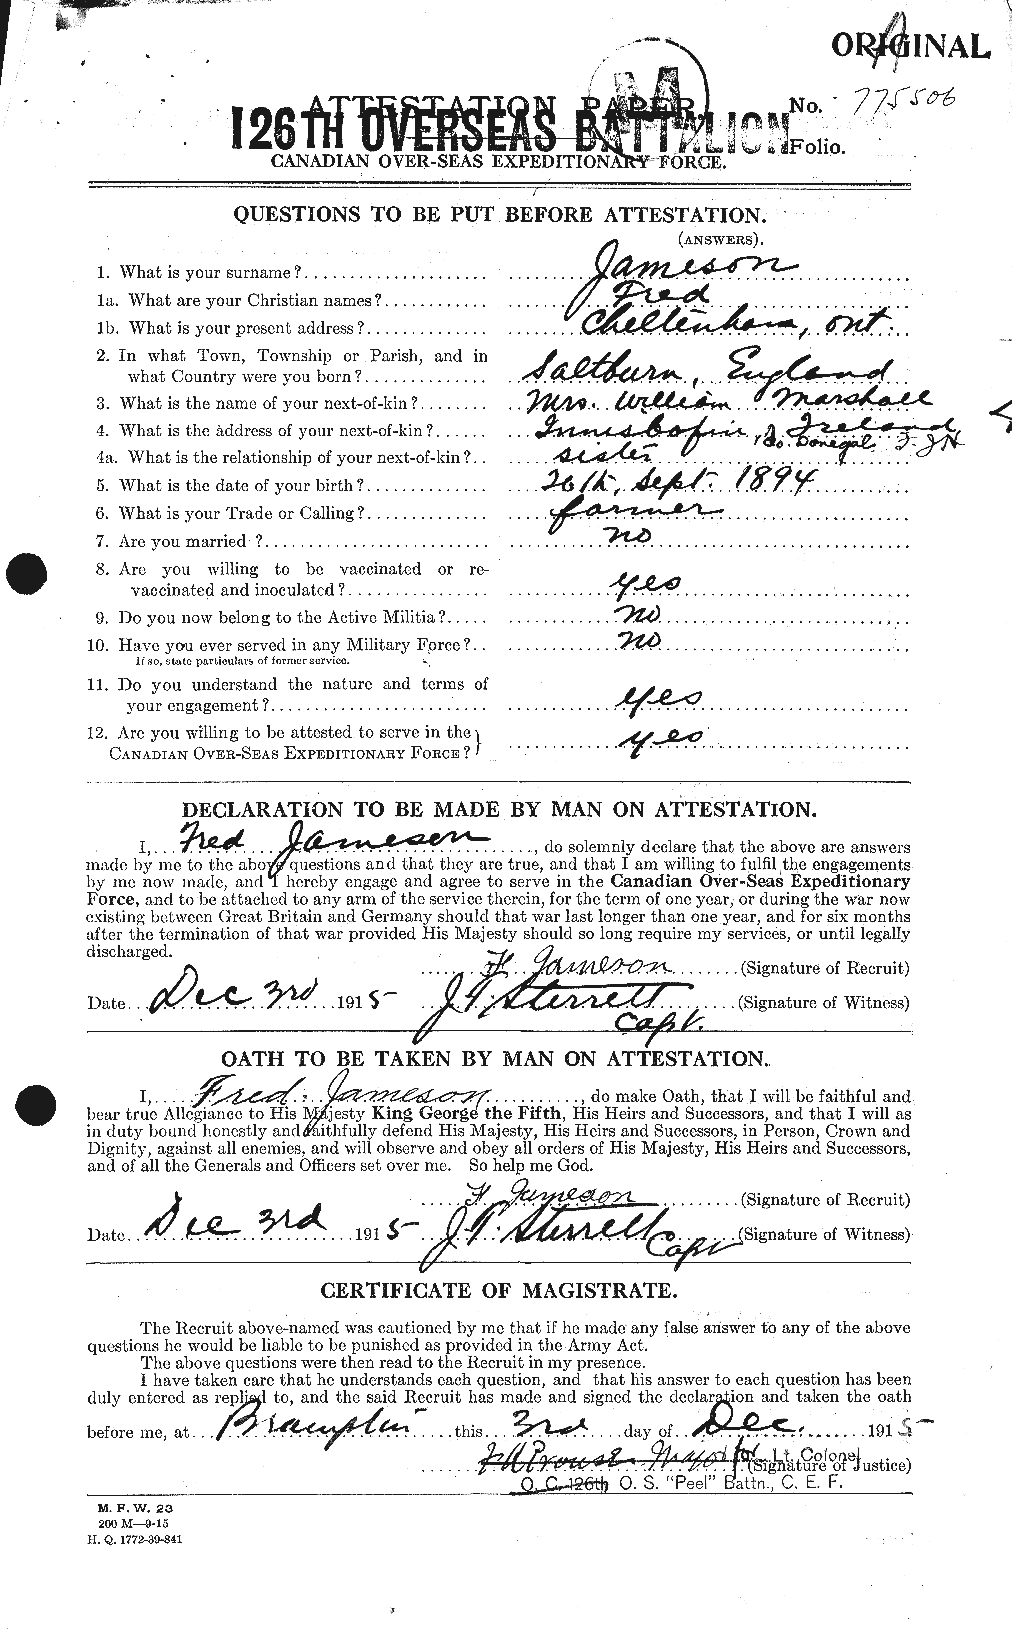 ORIGINAL
ATTESTATION PAPER.
No. 775506
126TH OVERSEAS BATTALION
Folio.
CANADIAN OVER-SEAS EXPEDITIONARY FORCE.
QUESTIONS TO BE PUT BEFORE ATTESTATION.
(ANSWERS).
1. What is your surname? Jameson
1a. What are your Christian names? Fred
1b. What is your present address? Cheltenham, Ont.
2. In what Town, Township or Parish, and in
what Country were you born? Saltburn, England
3. What is the name of your next-of-kin? Mrs. William Marshall
4. What is the address of your next-of-kin? Innisbofin, Ireland
Co. Donegal
4a. What is the relationship of your next-of-kin? sister
5. What is the date of your birth? 26th, Sept. 1894
6. What is your Trade or Calling? farmer
7. Are you married? no
8. Are you willing to be vaccinated or re-
vaccinated and inoculated? yes
9. Do you now belong to the Active Militia? no
10. Have you ever served in any Military Force? no
If so, state particulars of former service.
11. Do you understand the nature and terms of
your engagement? yes
12. Are you willing to be attested to serve in the
CANADIAN OVER-SEAS EXPEDITIONARY FORCE? yes
DECLARATION TO BE MADE BY MAN ON ATTESTATION.
I, Fred Jameson, do solemnly declare that the above are answers
made by me to the above questions and that they are true, and that I am willing to fulfil the engagements
by me now made, and I hereby engage and agree to serve in the Canadian Over-Seas Expeditionary
Force, and to be attached to any arm of the service therein, for the term of one year, or during the war now
existing between Great Britain and Germany should that war last longer than one year, and for six months
after the termination of that war provided His Majesty should so long require my services, or until legally
discharged.
F Jameson (Signature of Recruit)
Date Dec 3rd 1915 J T Sterrett (Signature of Witness)
Capt.
OATH TO BE TAKEN BY MAN ON ATTESTATION.
I, Fred Jameson, do make Oath, that I will be faithful and
bear true Allegiance to His Majesty King George the Fifth, His Heirs and Successors, and that I will as
in duty bound honestly and faithfully defend His Majesty, His Heirs and Successors, in Person, Crown and
Dignity, against all enemies, and will observe and obey all orders of His Majesty, His Heirs and Successors,
and of all the Generals and Officers set over me. So help me God.
F Jameson (Signature of Recruit)
Date Dec 3rd 1915 J T. Sterrett Capt (Signature of Witness)
CERTIFICATE OF MAGISTRATE.
The Recruit above-named was cautioned by me that if he made any false answer to any of the above
questions he would be liable to be punished as provided in the Army Act.
The above questions were then read to the Recruit in my presence.
I have taken care that he understands each question, and that his answer to each question has been
duly entered as replied to, and the said Recruit has made and signed the declaration and taken the oath
before me, at Brampton this 3rd day of Dec. 1915
Prouse Major for Lt. Colonel
(Signature of Justice)
O. C. 126th O. S. "Peel" Battn., C. E. F.
M. F. W. 23
200 M—9-15
H. Q. 1772-39-841